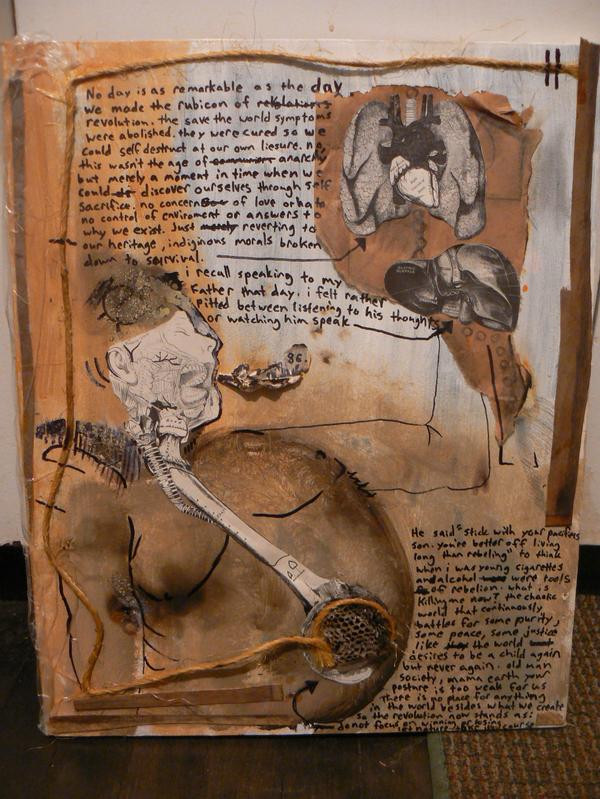 No day is as remarkable as the day
we made the rubicon of relations
revolution. the save the world symptoms
were abolished. they were cured so we
could self destruct at our own liesure. no,
this wasn't the age of communist anarchy
but merely a moment in time when we
could discover ourselves through self
sacrifice. no concern of love or hate
no control of enviroment or answers to
why we exist. Just merely reverting to
our heritage, indiginous morals broken
down to survival.
i recall speaking to my
Father that day. i felt rather
pitted between listening to his thoughts
or watching him speak
86
He said "stick with your pacifiers
son. you're better off living
long than rebeling" to think
when i was young cigarettes
and alcohol were tools
of rebelion. what is
killing me now? the chaotic
world that continuously
battles for some purity,
some peace, some justice
like the world
desires to be a child again
but never again. old man
society, mama earth your
posture is too weak for us
there is no place for anything
in the world besides what we create
so the revolution now stands as:
do not focus on winning or losing
let nature take its course